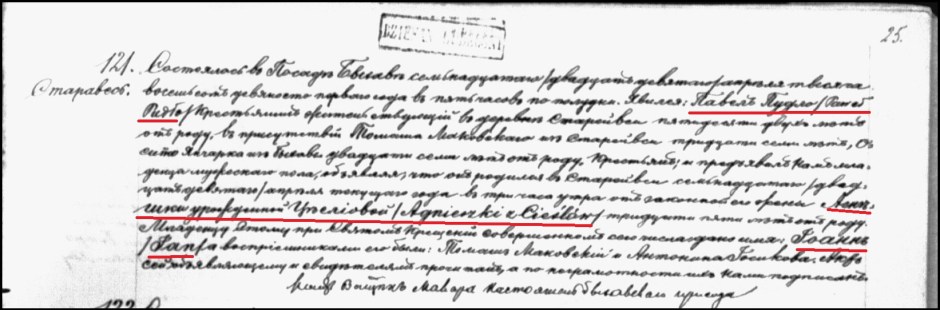 25.
121. Состоялось въ Посадѣ Бычавѣ семьнадцатаго /двадцать девятаго/ апрѣля тысяча
Старавесь. восемьсотъ девяносто перваго года въ пять часовъ по полудни. Явился: Павелъ Пудло /Paweł
Pudło/ крестьянинъ жительствующій въ деревнѣ Старойвси пятьдесяти двухъ лѣтъ
отъ роду, въ присутствіи Томаша Маковскаго изъ Старойвси тридцати семи лѣтъ,
изъ Бычавы двадцати семи лѣтъ отъ роду, крестьянъ; и предъявилъ намъ мла-
денца мужескаго пола, объявляя, что онъ родился въ Старойвси семьнадцатаго /двад-
цать девятаго/ апрѣля текущаго года въ три часа утра отъ законной его жены Агнѣ-
шки урожденной /Agnieszki z Cieślów/ тридцати пяти лѣтъ отъ роду.
Младенцу этому при Святомъ Крещеніи совершонномъ сего числа дано имя: Іоаннъ
/Jan/ а воспріемниками его были: Томашъ Маковскій и Антонина
объявляющему и свидѣтелямъ прочитанъ, а по неграмотности ихъ нами подписанъ.
настоятель Бычавскаго прихода
122